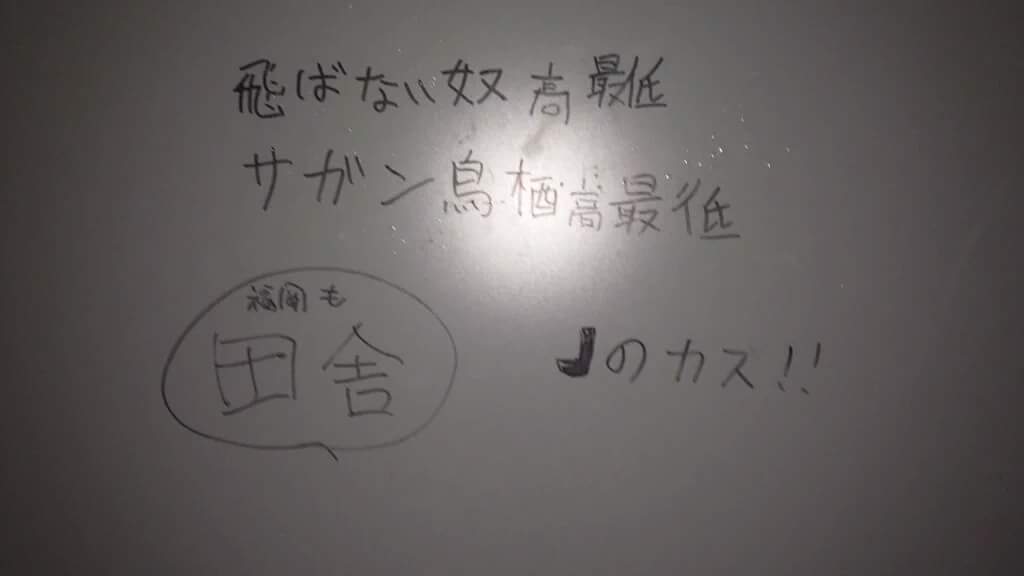 飛ばない奴高最低
サガン鳥栖高最低
福岡も
田舎
Jのカス!!